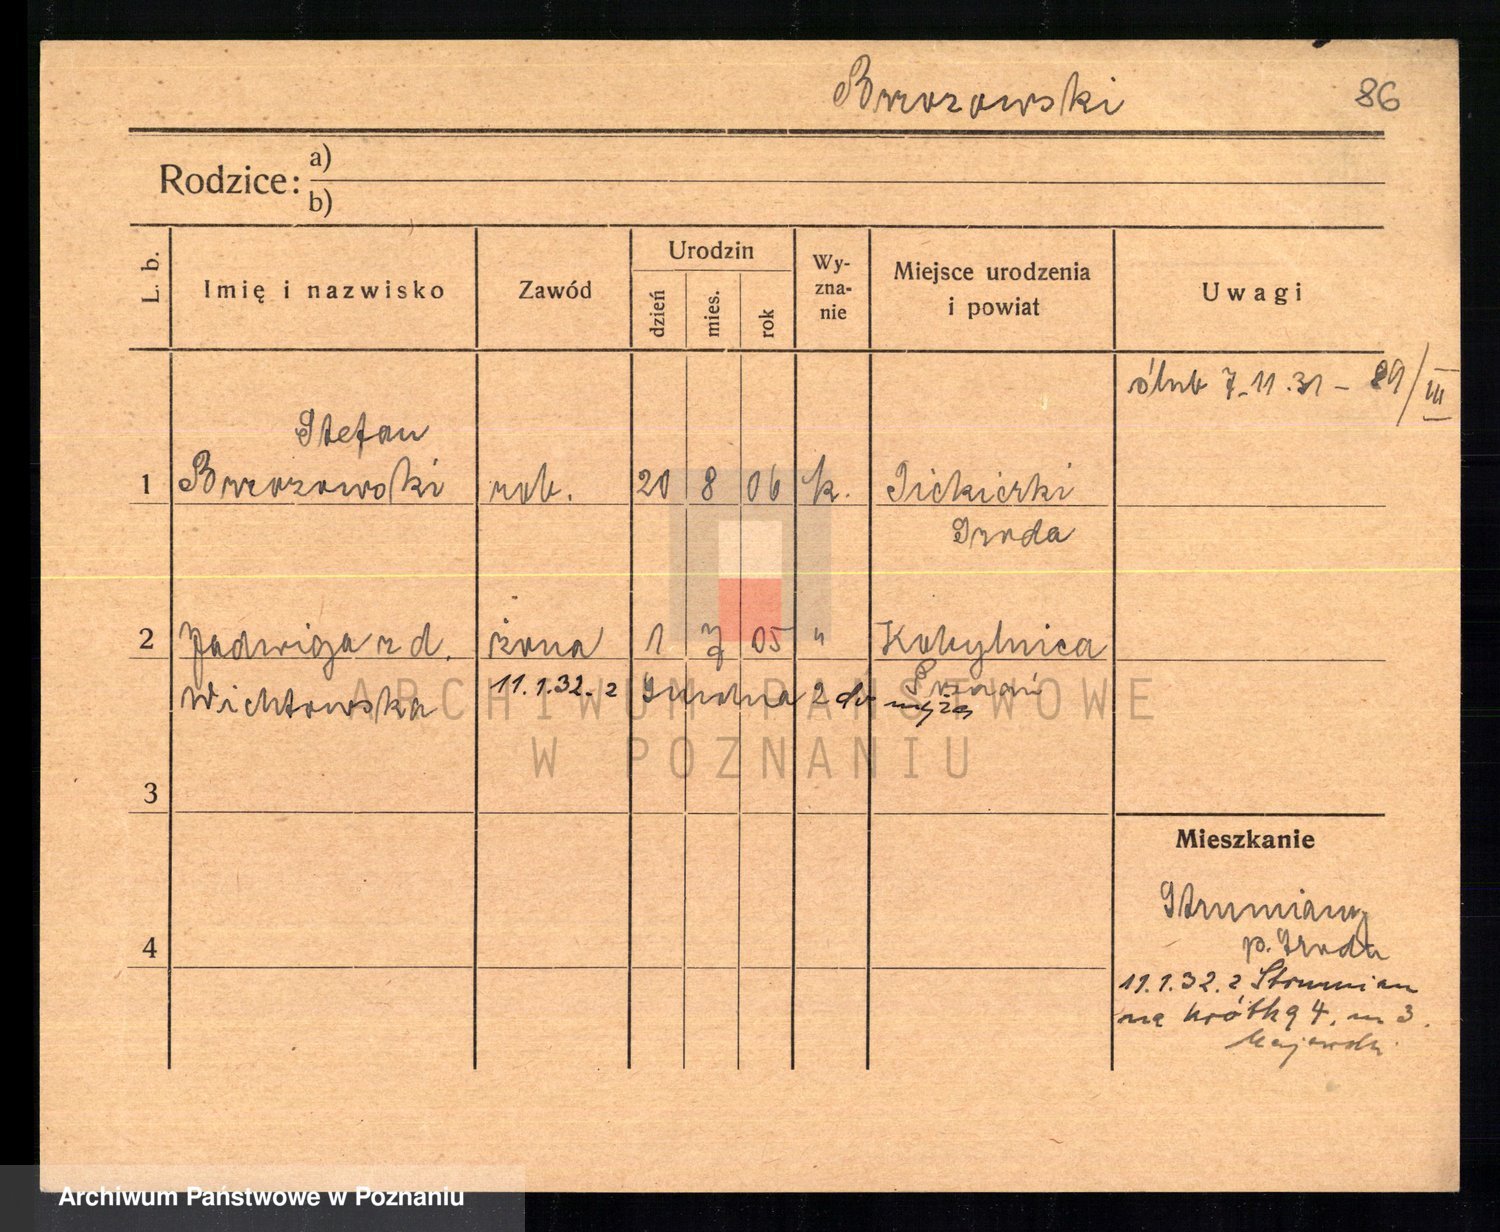 Brzozowski 86
Rodzice: a)
b)
L. b. Imię i nazwisko Zawód Urodzin dzień mies. rok Wy-zna-nie Miejsce urodzenia i powiat Uwagi
ślub 7.11.31 – 89/III
Stefan
1 Brzozowski rob. 20 8 06 k.
Środa
2 Jadwiga z d. żona 1 7 05 " Kobylnica
Poznań
Wichtowska 11.1.32. z 2 do męża
3
Mieszkanie
Strumiany
4 p. Środa
11.1.32. z Strumian
na Krótką 4. m 3.
Majewski
ARCHIWUM PAŃSTWOWE
W POZNANIU
Archiwum Państwowe w Poznaniu